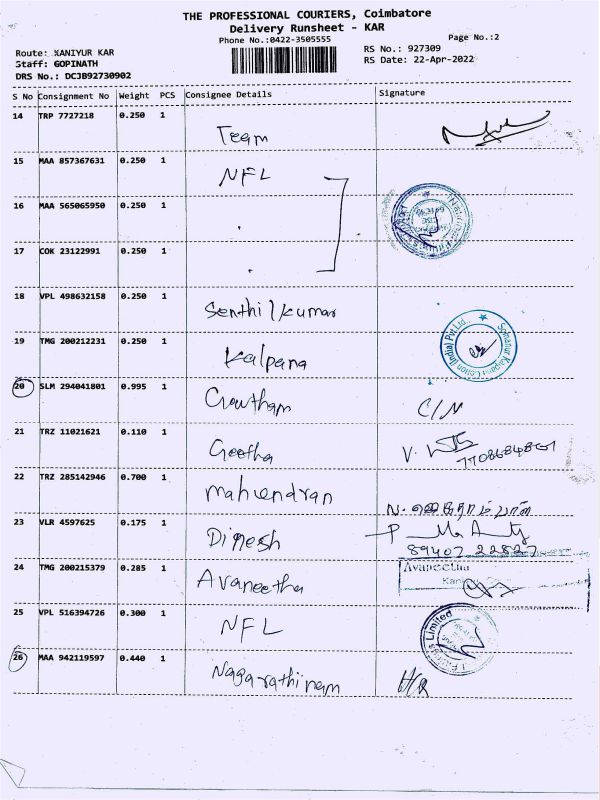 THE PROFESSIONAL COURIERS, Coimbatore
Delivery Runsheet - KAR
Phone No.:0422-3505555
Page No.:2
Route: KANIYUR KAR
RS No.: 927309
Staff: GOPINATH
RS Date: 22-Apr-2022
DRS No.: DCJB92730902
S No Consignment No Weight PCS Consignee Details Signature
14 TRP 7727218 0.250 1 Team
15 MAA 857367631 0.250 1 NFL
16 MAA 565065950 0.250 1
17 COK 23122991 0.250 1
18 VPL 498632158 0.250 1 Senthilkumar
19 TMG 200212231 0.250 1 Kalpana
20 SLM 294041801 0.995 1 Gowtham C/N
21 TRZ 11021621 0.110 1 Geetha
22 TRZ 285142946 0.700 1 Mahendran
23 VLR 4597625 0.175 1 Dinesh 89407 22827
24 TMG 200215379 0.285 1 Avaneetha Avaneetha
25 VPL 516394726 0.300 1 NFL Limited
26 MAA 942119597 0.440 1 Nagarathinam